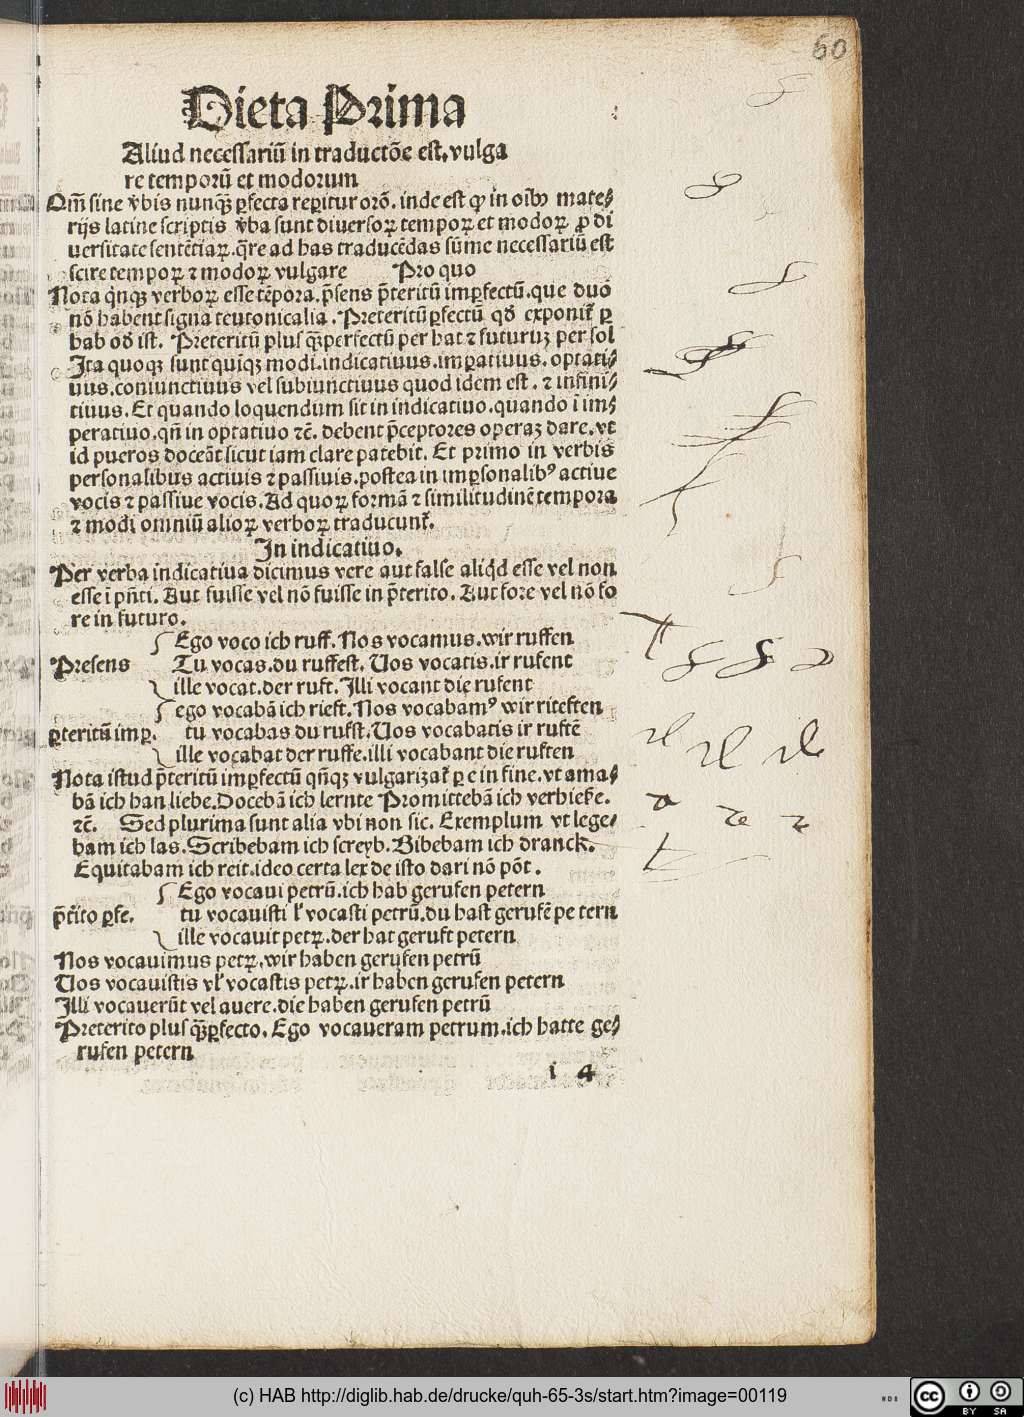 60
Dieta Prima
Aliud necessariū in traductōe est, vulga
re temporū et modorum
Om̄ sine v̄bis nunqꝫ ꝑfecta reꝑitur orō. inde est ꝙ in oībꝰ mate⸗
rijs latine scriptis v̄ba sunt diuersoꝝ tempoꝝ et modoꝝ ꝓ di
uersitate sentētiaꝝ. q̄re ad has traducēdas sūme necessariū est
scire tempoꝝ ⁊ modoꝝ vulgare Pro quo
Nota qͥnqꝫ verboꝝ esse tēpora. p̄sens p̄teritū imꝑfectū. que duo
nō habent signa teutonicalia. Preteritū ꝑfectū qđ exponit᷑ ꝑ
hab od ist. Preteritū plus qꝫ̄perfectū per hat ⁊ futuruꝫ per sol
Ita quoqꝫ sunt quīqꝫ modi. indicatiuus. imꝑatiuus. optati⸗
uus. coniunctiuus vel subiunctiuus quod idem est. ⁊ infini⸗
tiuus. Et quando loquendum sit in indicatiuo. quando ī im⸗
peratiuo. qn̄ in optatiuo ⁊c̄. debent p̄ceptores operaꝫ dare. vt
id pueros doceāt sicut iam clare patebit. Et primo in verbis
personalibus actiuis ⁊ passiuis. postea in imꝑsonalibꝰ actiue
vocis ⁊ passiue vocis. Ad quoꝝ formā ⁊ similitudinē tempora
⁊ modi omniū alioꝝ verboꝝ traducunt᷑.
In indicatiuo.
Per verba indicatiua dicimus vere aut false aliqͥd esse vel non
esse ī pn̄ti. Aut fuisse vel nō fuisse in p̄terito. Aut fore vel nō fo
re in futuro.
Ego voco ich ruff. Nos vocamus. wir ruffen
Presens Tu vocas. du ruffest. Uos vocatis. ir rufent
ille vocat. der ruft. Illi vocant die rufent
ego vocabā ich rieft. Nos vocabamꝰ wir riteften
p̄teritū imꝑ. tu vocabas du rufst. Uos vocabatis ir ruftē
ille vocabat der ruffe. illi vocabant die ruften
Nota istud p̄teritū imꝑfectū qn̄qꝫ vulgarizat᷑ ꝑ e in fine. vt ama⸗
bā ich han liebe. Docebā ich lernte Promittebā ich verhieſe.
⁊c̄. Sed plurima sunt alia vbi non sic. Exemplum vt lege⸗
bam ich las. Scribebam ich screyb. Bibebam ich dranck.
Equitabam ich reit. ideo certa lex de isto dari nō pōt.
Ego vocaui petrū. ich hab gerufen petern
p̄tito ꝑfe. tu vocauisti lꝉ vocasti petrū. du hast gerufē pe tern
ille vocauit petꝝ. der hat geruft petern
Nos vocauimus petꝝ. wir haben gerufen petrū
Uos vocauistis vꝉ vocastis petꝝ. ir haben gerufen petern
Illi vocauerūt vel auere. die haben gerufen petrū
Preterito plus qꝫ̄ꝑfecto. Ego vocaueram petrum. ich hatte ge⸗
rufen petern
i 4
(c) HAB http://diglib.hab.de/drucke/quh-65-3s/start.htm?image=00119
WDB
cc BY SA